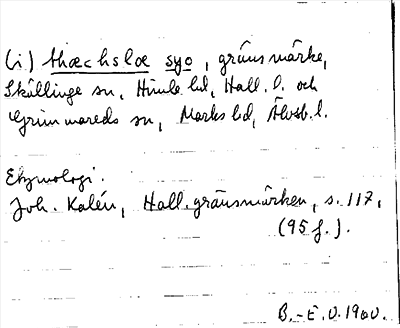 (i) thæchslæ syo, gränsmärke,
Skällinge sn, Himle hd, Hall. l. och
Grimmareds sn, Marks hd, Älvsb. l.
Etymologi.
Joh. Kalén, Hall. gränsmärken, s. 117,
(95 f.).
B.-E. O. 1960.